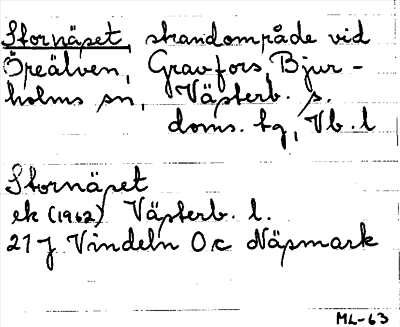 Stornäset, strandområde vid
Öreälven, Gravfors, Bjur-
holms sn, Västerb. s.
doms. tg, Vb. l
Stornäset
ek (1962) Västerb. l.
21 J Vindeln 0c Näsmark
ML-63